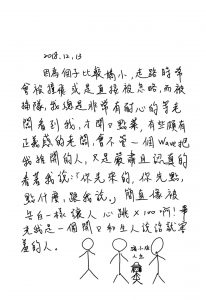 2018.12.13
因為個子比較嬌小,走路時常
會被推擠或是直接被忽略,而被
插隊,我總是非常有耐心的等老
闆看到我,才開口點菜,有些頗有
正義感的老闆,會不管一個Wave把
我推開的人,只是嚴肅且認真的
看著我說:「你先來的,你先點,
點什麼,跟我說。」簡直像被
告白一樣讓人心跳x100啊!畢
竟我是一個開口和生人說話就害
羞的人。